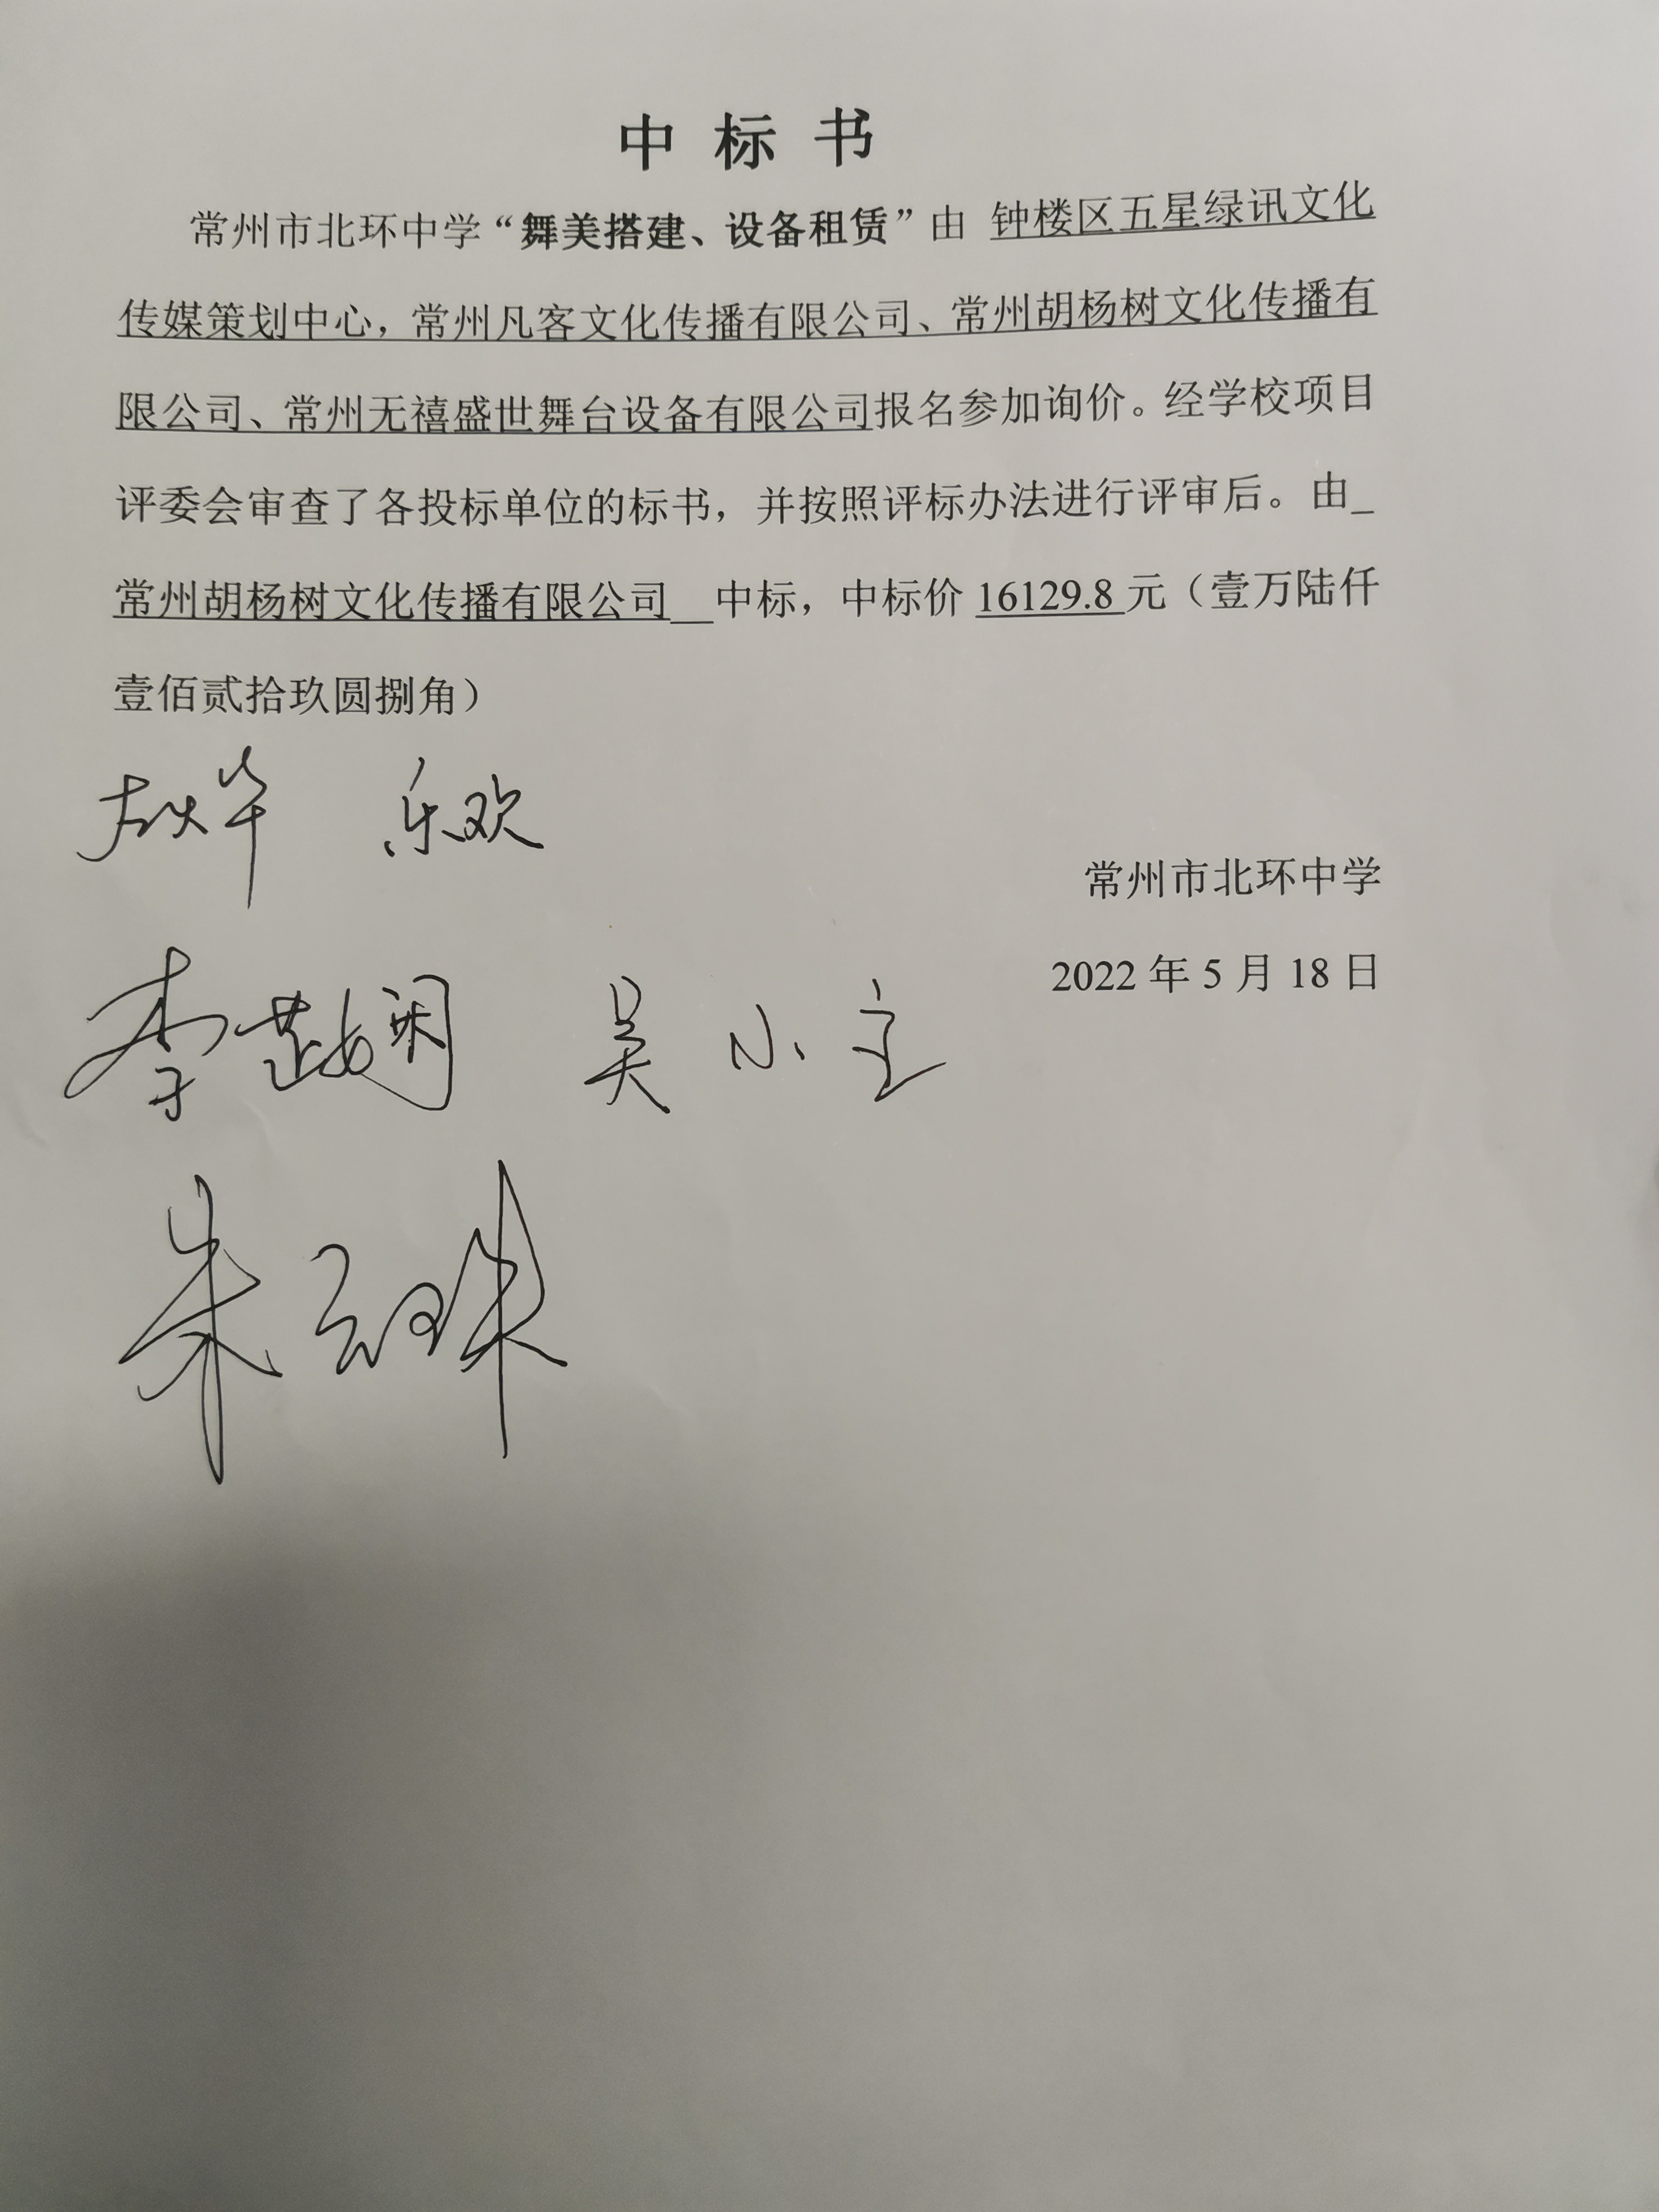 中标书
常州市北环中学“舞美搭建、设备租赁”由 钟楼区五星绿讯文化
传媒策划中心，常州凡客文化传播有限公司、常州胡杨树文化传播有
限公司、常州无禧盛世舞台设备有限公司报名参加询价。经学校项目
评委会审查了各投标单位的标书，并按照评标办法进行评审后。由_
常州胡杨树文化传播有限公司__中标，中标价 16129.8 元（壹万陆仟
壹佰贰拾玖圆捌角）
乐欢
常州市北环中学
2022 年 5 月 18 日
李
吴小主
朱